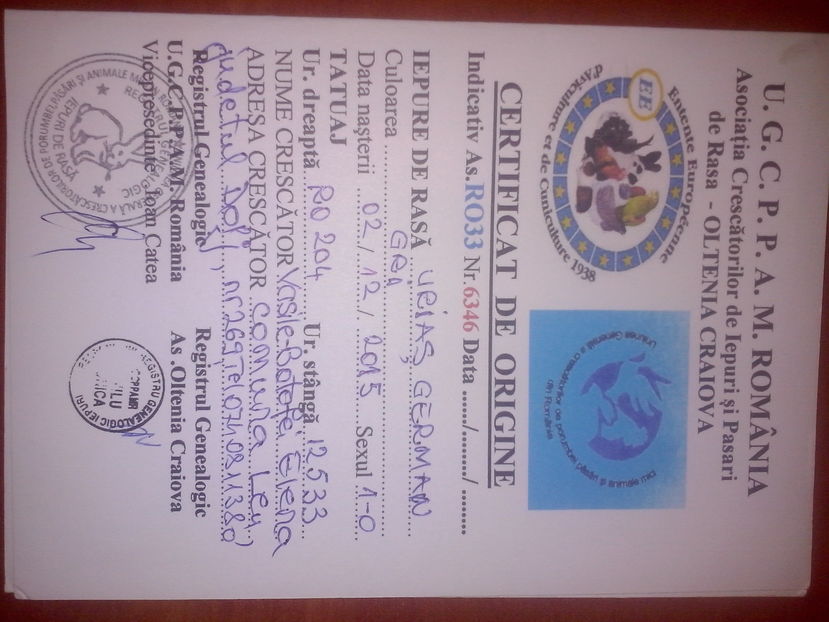 U. G. C. P. P. A. M. ROMÂNIA
Asociația Crescătorilor de Iepuri și Pasari
de Rasa - OLTENIA CRAIOVA
Entente Européenne
EE
d'Aviculture et de Cuniculture 1938
Uniunea Generală a crescătorilor de porumbei păsări și animale mici
din România
CERTIFICAT DE ORIGINE
Indicativ As. RO33 Nr. 6346 Data ....../......../ ........
IEPURE DE RASĂ URIAȘ GERMAN
Culoarea GRI
Data nașterii 02 / 12 / 2015 Sexul 1-0
TATUAJ
Ur. dreaptă RO 204 Ur. stângă 12533
NUME CRESCĂTOR Vasile Elena
ADRESA CRESCĂTOR Comuna Leu
Județul Dolj, nr 269
Registrul Genealogic
U.G.C.P.P.A.M. România
Vicepreședinte Ioan Catea
Registrul Genealogic
As .Oltenia Craiova
IEPURI DE RASĂ
REGISTRUL GENEALOGIC